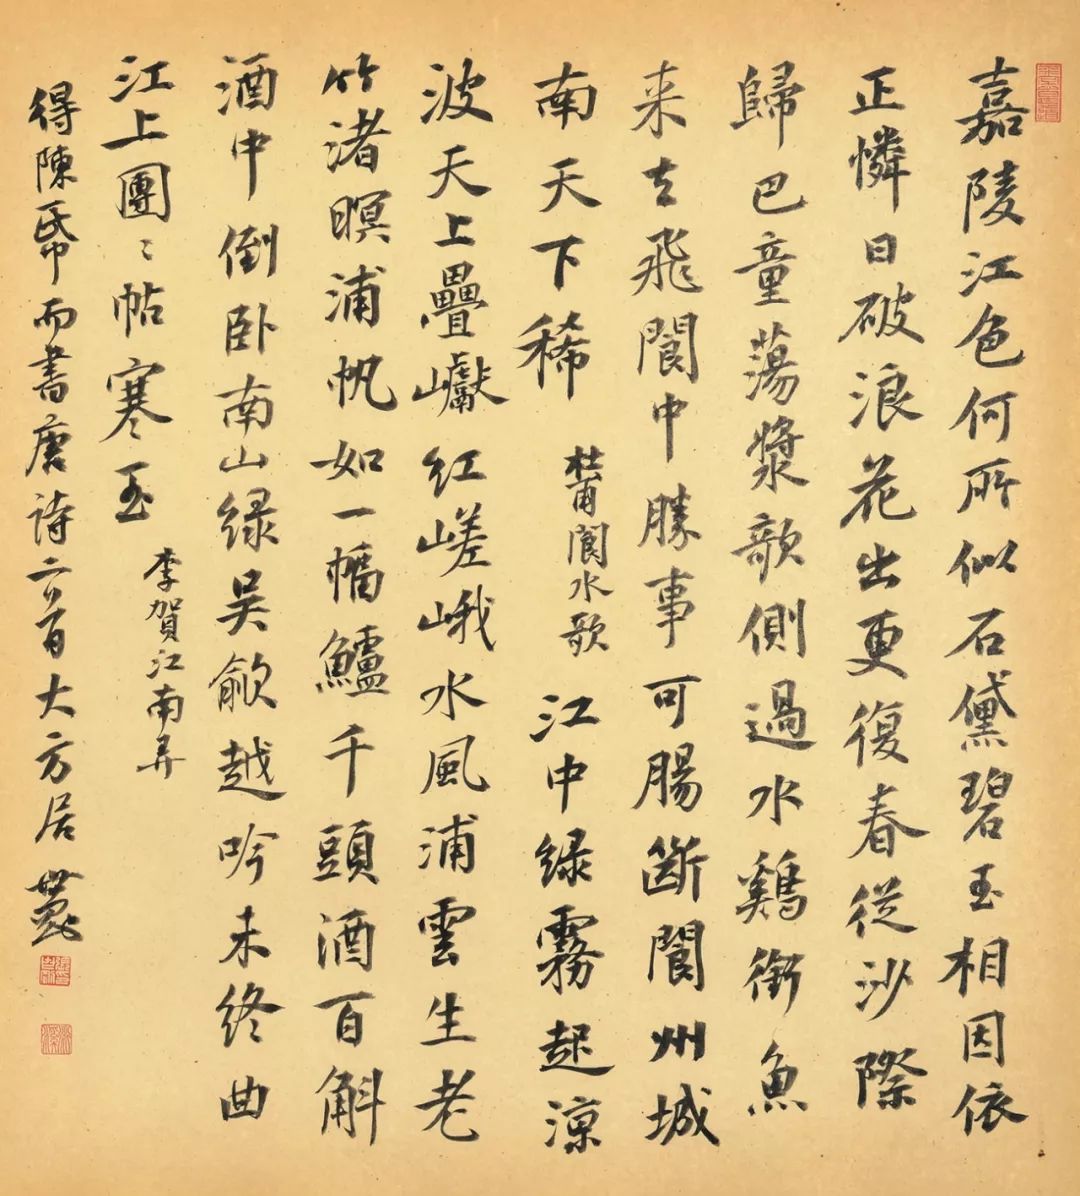 嘉陵江色何所似石黛碧玉相因依
正憐日破浪花出更復春從沙際
歸巴童蕩槳歌側過水鷄銜魚
来去飛閬中勝事可腸斷閬州城
南天下稀 杜甫閬水歌 江中緑霧起涼
波天上疊巘紅嵯峨水風浦雲生老
竹渚暝浦帆如一幅鱸千頭酒百斛
酒中倒卧南山緑吴歈越吟未終曲
江上團〻帖寒玉 李賀江南弄
得陳帋而書唐詩二首大方居